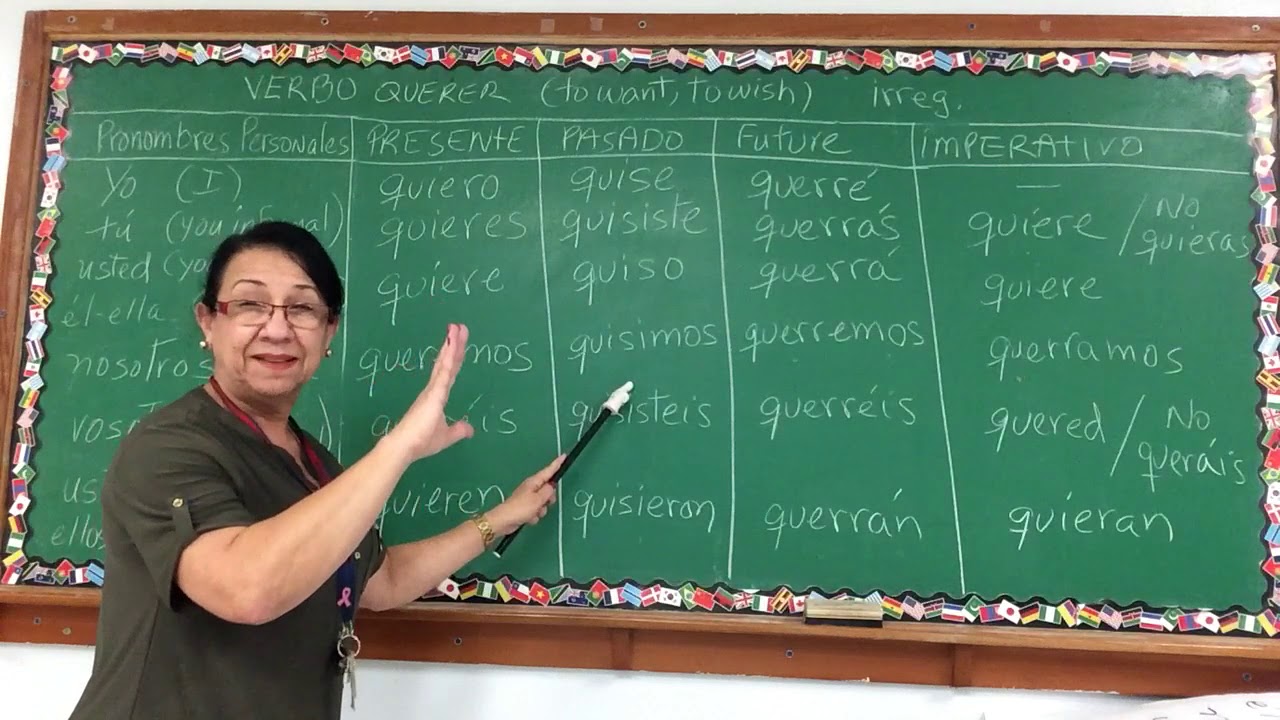 VERBO QUERER (to want, to wish) irreg.
Pronombres Personales PRESENTE PASADO Future IMPERATIVO
Yo (I) quiero quise querré —
tú (you informal) quieres quisiste querrás quiere / No quieras
usted quiere quiso querrá quiere
él-ella
nosotros quisimos querremos querramos
querréis quered / No queráis
quieren quisieron querrán quieran